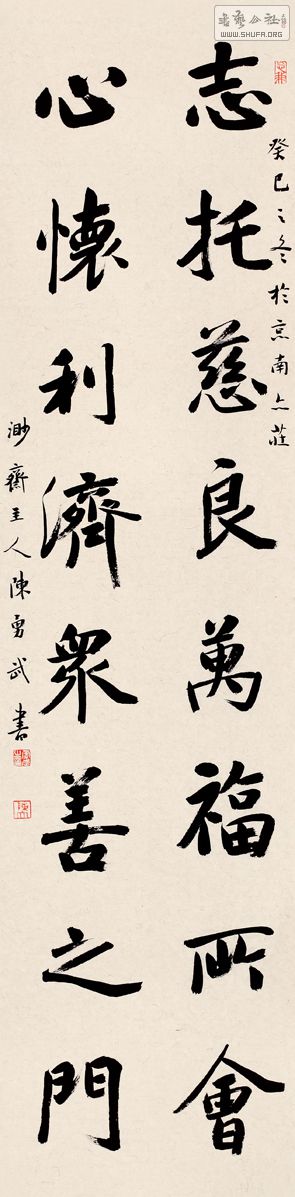 書藝公社
WWW.SHUFA.ORG
癸巳之冬於京南上莊
志托慈良萬福所會
心懷利濟眾善之門
渺齋主人陳勇武書